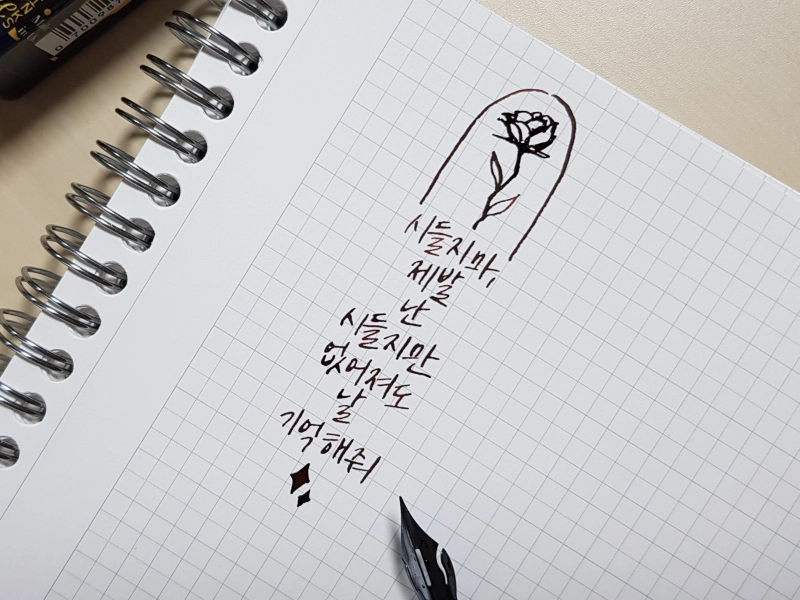 시들지마,
제발
난
시들지만
없어져도
날
기억해줘